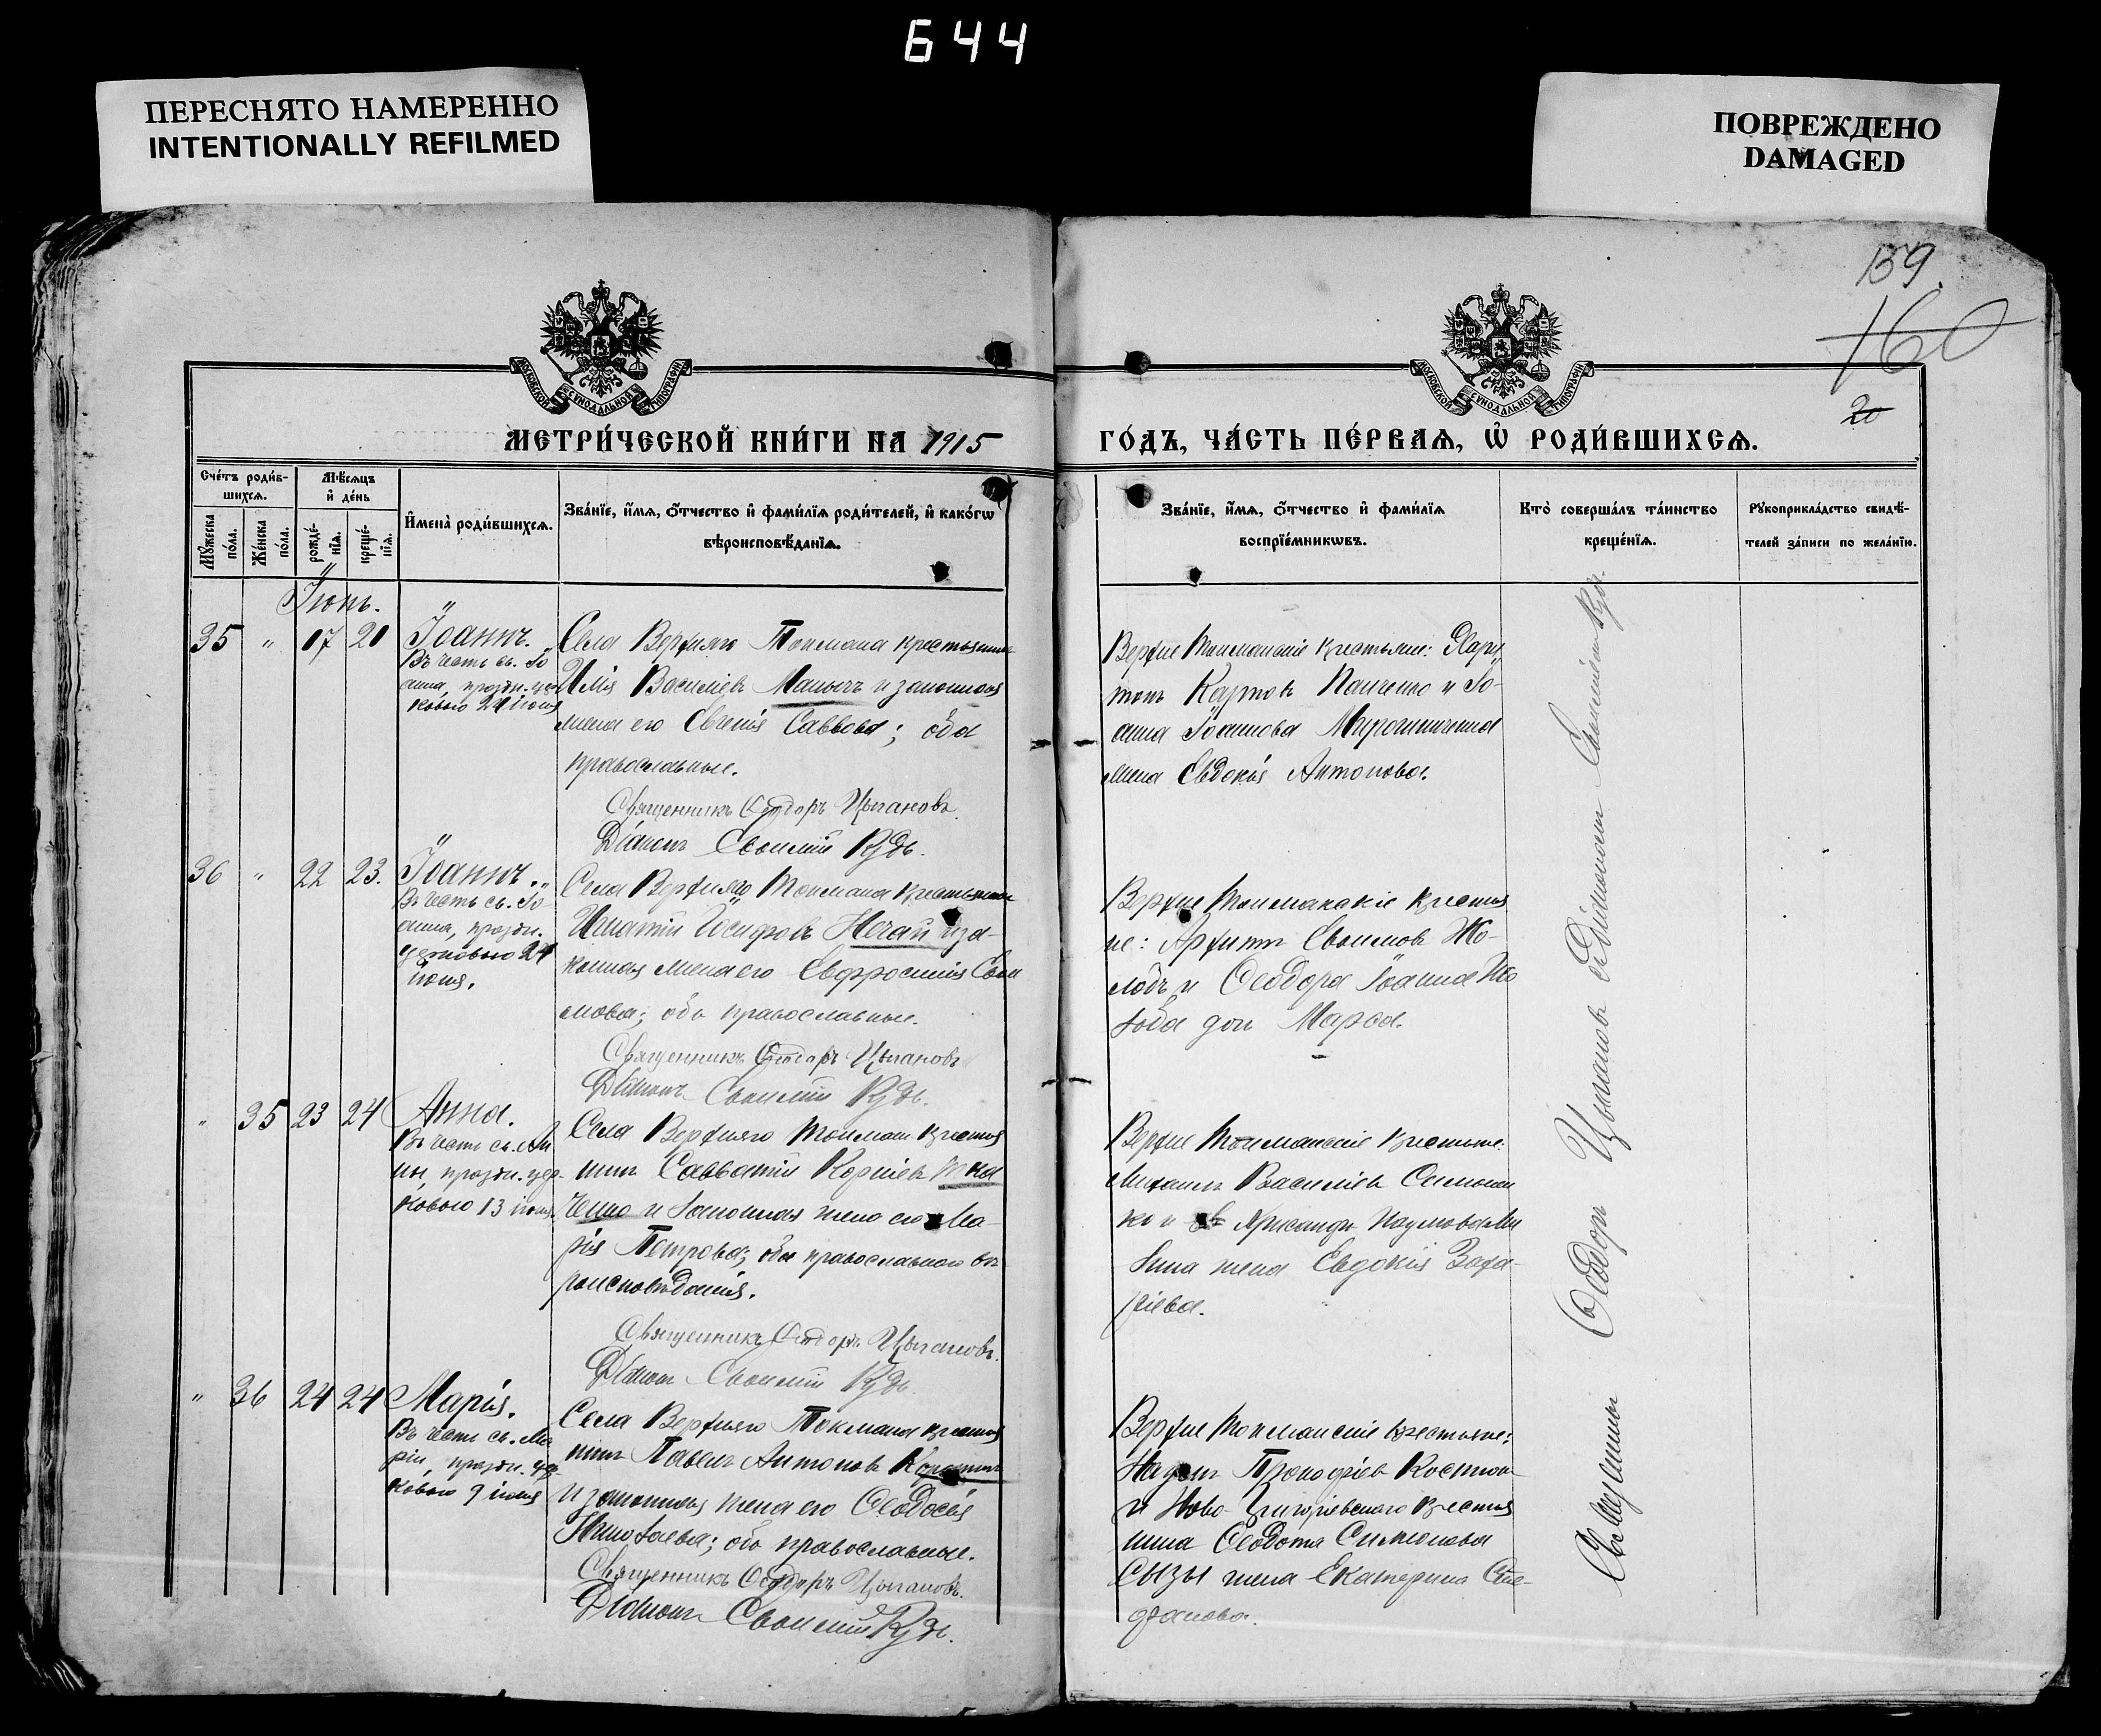 644
ПЕРЕСНЯТО НАМЕРЕННО
INTENTIONALLY REFILMED
ПОВРЕЖДЕНО
DAMAGED
159.
160
20
МОСКОВСКОЙ СѴНОДАЛЬНОЙ ТИПОГРАФІИ
МОСКОВСКОЙ СѴНОДАЛЬНОЙ ТИПОГРАФІИ
МЕТРИ́ЧЕСКОЙ КНИ́ГИ НА 1915
ГО́ДЪ, ЧА́СТЬ ПЕ́РВАѦ, Ѡ҆ РОДИ́ВШИХСѦ.
Сче́тъ роди́в-
шихсѧ.
Мꙋ́жеска
по́ла.
Же́нска
по́ла.
Мѣ́сѧцъ
и҆ де́нь
рожде́-
нїѧ.
креще́-
нїѧ.
И҆мена̀ роди́вшихсѧ.
Зва́нїе, и҆́мѧ, ѻ҆́тчество и҆ фами́лїѧ роди́телей, и҆ како́гѡ
вѣроисповѣ́данїѧ.
Зва́нїе, и҆́мѧ, ѻ҆́тчество и҆ фами́лїѧ
воспрїе́мникѡвъ.
Кто̀ соверша́лъ та́инство
креще́нїѧ.
Рꙋкоприкла́дство свидѣ́-
телей за́писи по жела́нїю.
Іюнь.
35 " 17 20 Іоаннъ.
Въ честь св. Іо
анна, праздн. цер
ковью 24 іюня
Села Верхняго Токмака крестьянин
Илія Васильевъ Маныч и законная
жена его Евгенія Саввова; оба
православные.
Священникъ Ѳеодоръ Цыгановъ.
Діаконъ Евѳимій Кудь.
Верхне Токмакскіе крестьяне: Хари
тонъ Карповъ Панченко и Іо-
анна Іоаннова Мирошниченка
жена Евдокія Антонова.
36 " 22 23. Іоаннъ.
Въ честь св. Іо
анна, праздн.
церковью 24
іюня.
Села Верхняго Токмака крестьянин
Игнатій Іосифовъ Нечай и за-
конная жена его Евфросинія Евѳи
мова; оба православные.
Священникъ Ѳеодоръ Цыгановъ
Діаконъ Евѳимій Кудь.
Верхне Токмакскіе крестья
не: Архипъ Евѳимовъ Жо-
лобъ и Ѳеодора Іоанна Жо
лоба дочь Марѳа.
" 35 23 24 Анна.
Въ честь св. Ан
ны, праздн. цер-
ковью 13 іюня.
Села Верхняго Токмака крестья
нинъ Савватій Корніевъ Тка
ченко и законная жена его Ма-
рія Петрова; оба православнаго вѣ
роисповѣданія.
Священникъ Ѳеодоръ Цыгановъ.
Діаконъ Евѳимій Кудь.
Верхне Токмакскіе крестьяне:
Михаилъ Васильевъ
ко и Наумова
жена Евдокія Заха-
ріева.
" 36 24 24 Марія.
Въ честь св. Ма
ріи, праздн. цер
ковью 9 іюня
Села Верхняго Токмака крестья
нинъ Павелъ Антоновъ
и законная жена его Ѳеодосія
Николаева; оба православные.
Священникъ Ѳеодоръ Цыгановъ.
Діаконъ Евѳимій Кудь.
Верхне Токмакскіе крестьяне:
Назаръ Прокофіевъ
и Ново-Григорьевскаго крестья
нина Ѳеодота Симеонова
Сызы жена Екатерина Сте-
фанова.
Священникъ Ѳеодоръ Цыгановъ съ Діакономъ Евѳиміемъ Кудь.